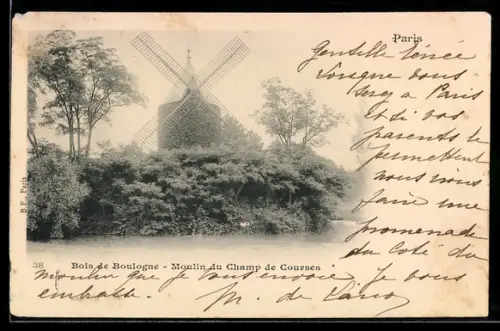 Paris
Gentille Rénée
Lorsque vous
serez a Paris
et si vos
parents le
permettent
nous irons
faire une
promenade
du coté du
B. F., Paris
38 Bois de Boulogne - Moulin du Champ de Courses
moulin que je vous envoie. Je vous
embrasse. M. de